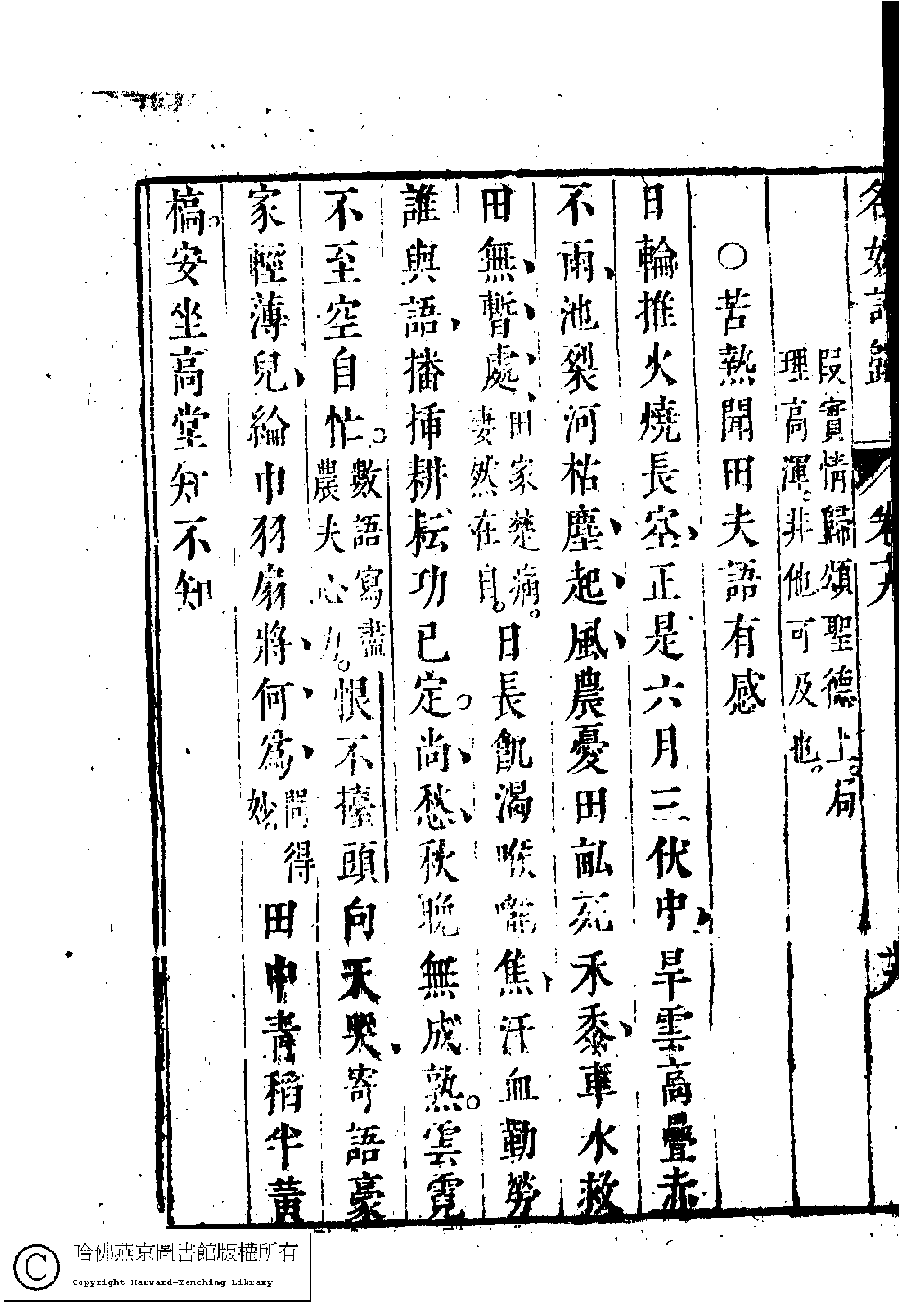 名媛詩歸 卷
段實情歸頌聖德上。何
理高渾、非他可及也。
○苦熱聞田夫語有感
日輪推火燒長空、正是六月三伏中、旱雲高疊赤
不雨、池裂河枯塵、起、風、農憂田畝死禾黍、車水救
田無、暫、處、田家楚痛。妻然在目。日長飢渴喉嚨焦、汗血勤勞
誰與語、播揷耕耘功已定。尚、愁、秋晚無成熟。雲霓
不至空自忙。數語寫盡農夫心力。恨不擡頭向天哭、寄語豪
家輕薄兒、綸巾羽扇將、何、爲、問得妙田中青稻半黃
槁。安坐高堂知不知
哈佛燕京圖書館版權所有
Copyright Harvard-Yenching Library